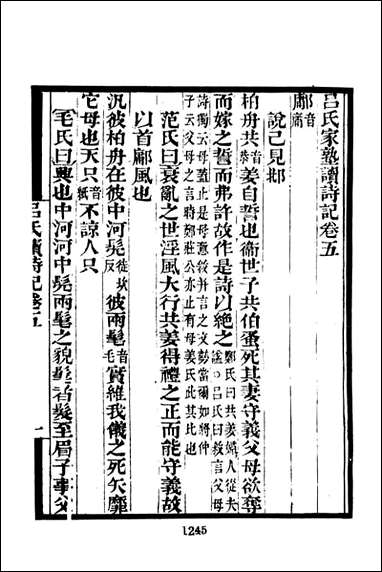 呂氏家塾讀詩記卷五
鄘音庸
說已見邶
柏舟共音恭姜自誓也衞世子共伯蚤死其妻守義父母欲奪
而嫁之誓而弗許故作是詩以絕之鄭氏曰共姜婦人從夫諡○呂氏曰敘言父母
詩獨云母蓋止是母意敘并言之文勢當爾如將仲子云父母之言時鄭莊公亦止有母姜氏此其比也
范氏曰衰亂之世淫風大行共姜得禮之正而能守義故
以首鄘風也
汎彼柏舟在彼中河髧徒坎反彼兩髦音毛實維我儀之死矢靡
它母也天只音紙不諒人只
毛氏曰興也中河河中髧兩髦之貌髦者髮至眉子事父
呂氏讀詩記卷五
一
1245